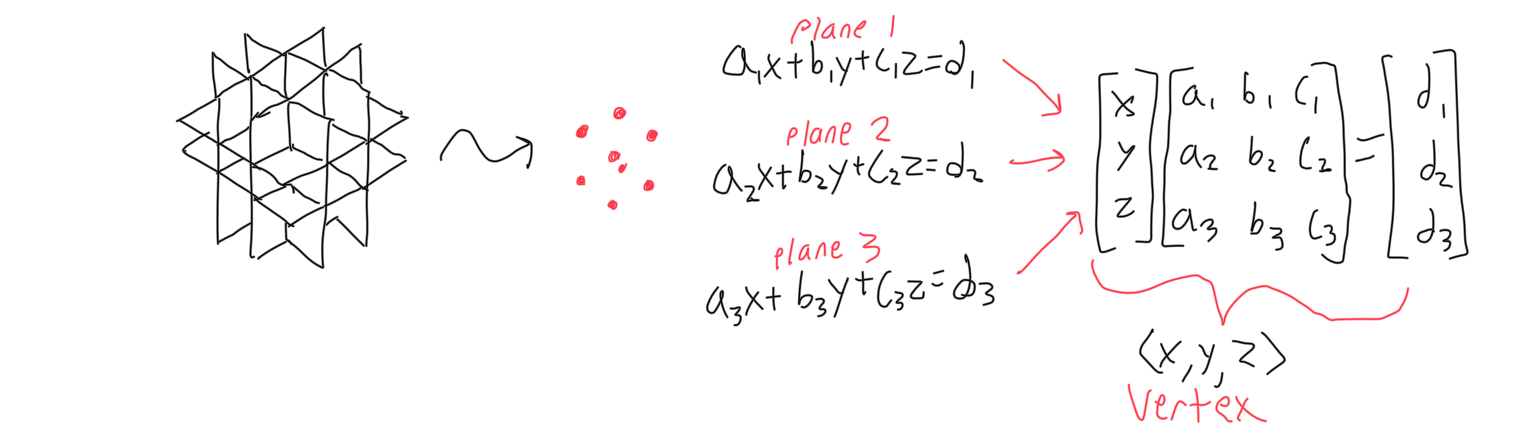 plane 1
a₁x+b₁y+c₁z=d₁
plane 2
a₂x+b₂y+c₂z=d₂
plane 3
a₃x+b₃y+c₃z=d₃
[x] [a₁ b₁ c₁] = [d₁]
[y] [a₂ b₂ c₂] = [d₂]
[z] [a₃ b₃ c₃] = [d₃]
⟨x,y,z⟩
Vertex